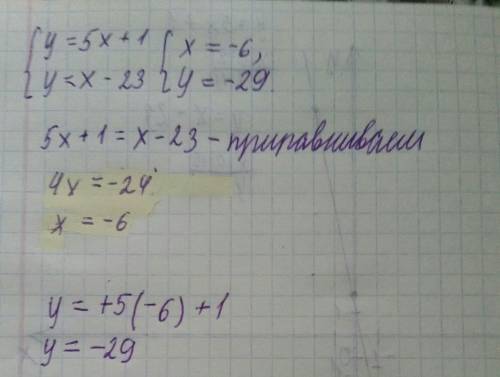 {y = 5x + 1 {x = -6,
y = x - 23 y = -29.
5x + 1 = x - 23 - приравниваем
4x = -24.
x = -6
y = +5(-6) + 1
y = -29